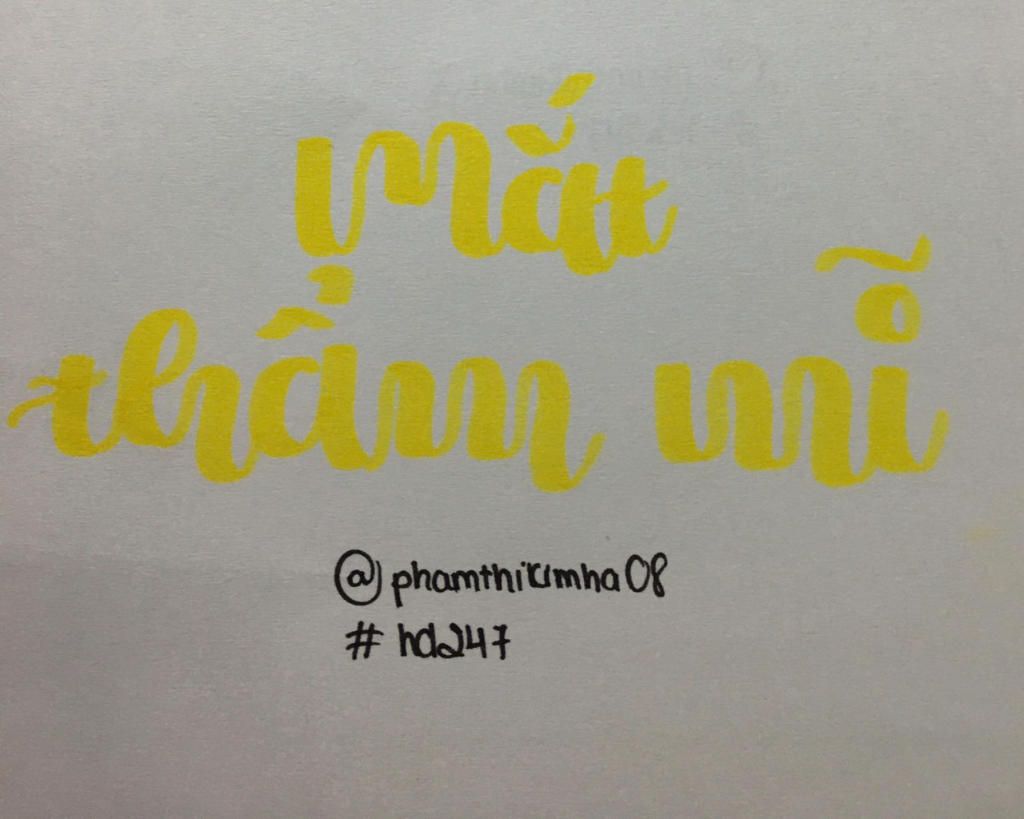 Mắt
thẩm mĩ
@phamthikimha08
#hd247